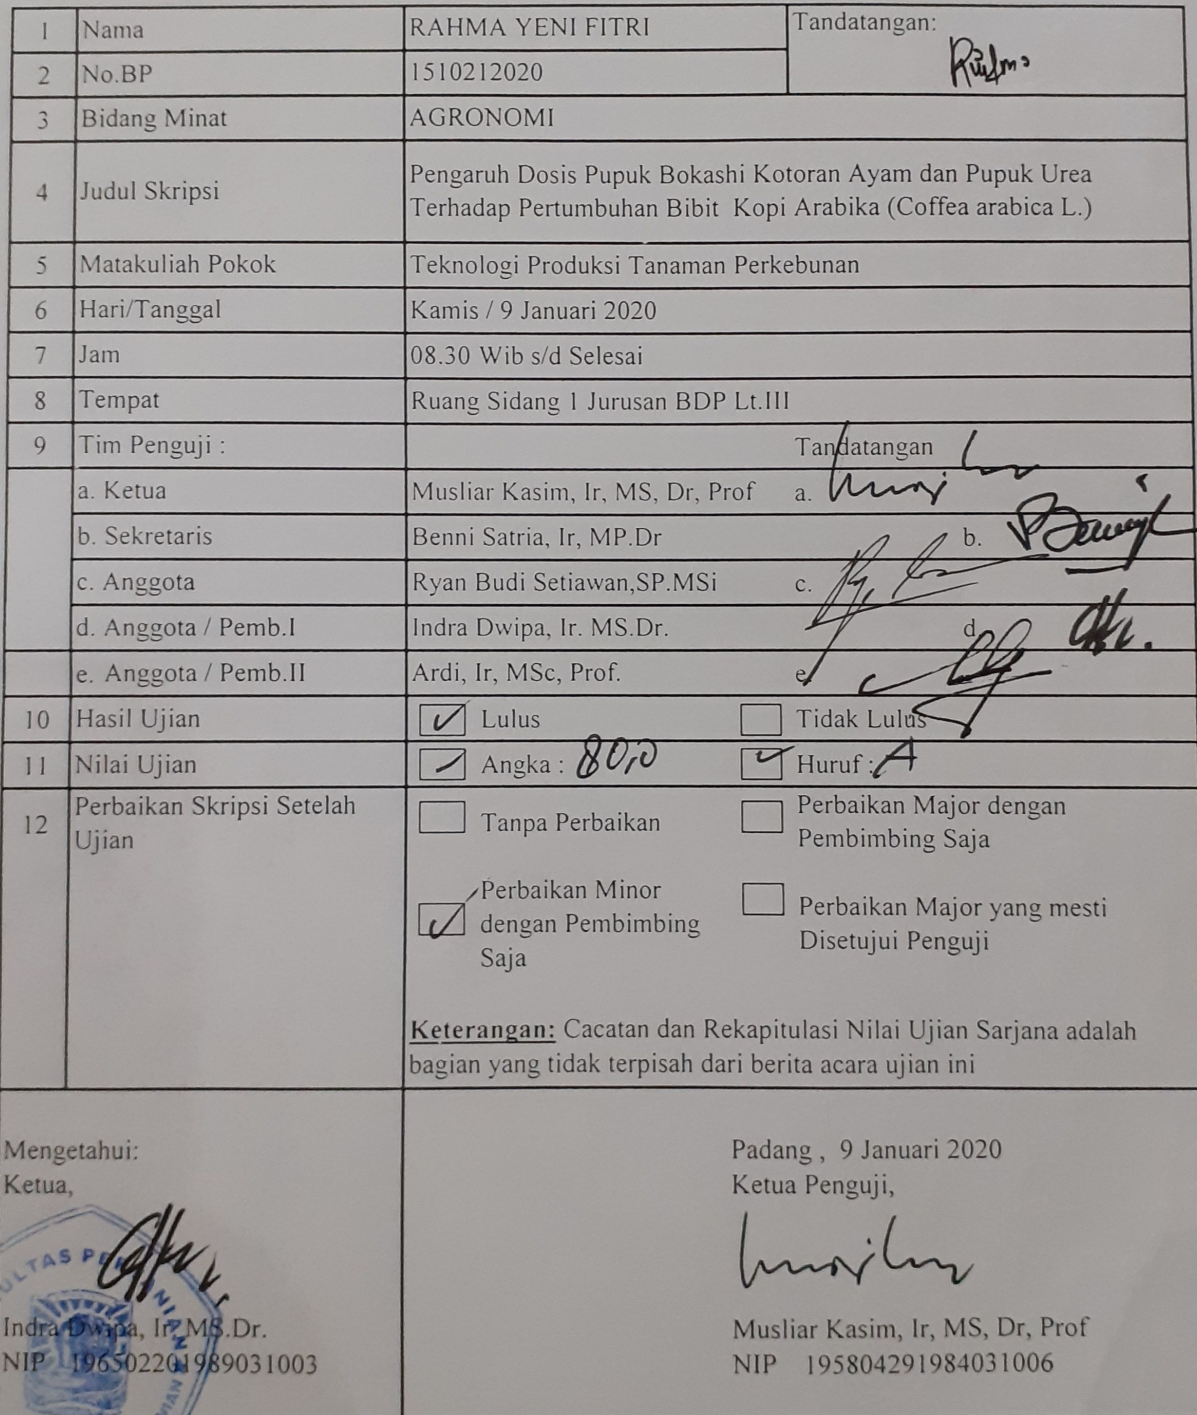 1 Nama RAHMA YENI FITRI Tandatangan:
2 No.BP 1510212020
3 Bidang Minat AGRONOMI
4 Judul Skripsi Pengaruh Dosis Pupuk Bokashi Kotoran Ayam dan Pupuk Urea
Terhadap Pertumbuhan Bibit Kopi Arabika (Coffea arabica L.)
5 Matakuliah Pokok Teknologi Produksi Tanaman Perkebunan
6 Hari/Tanggal Kamis / 9 Januari 2020
7 Jam 08.30 Wib s/d Selesai
8 Tempat Ruang Sidang 1 Jurusan BDP Lt.III
9 Tim Penguji : Tandatangan
a. Ketua Musliar Kasim, Ir, MS, Dr, Prof a.
b. Sekretaris Benni Satria, Ir, MP.Dr b.
c. Anggota Ryan Budi Setiawan,SP.MSi c.
d. Anggota / Pemb.I Indra Dwipa, Ir. MS.Dr. d
e. Anggota / Pemb.II Ardi, Ir, MSc, Prof. e
10 Hasil Ujian Lulus Tidak Lulus
11 Nilai Ujian Angka : 80,0 Huruf : A
12 Perbaikan Skripsi Setelah
Ujian
Tanpa Perbaikan
Perbaikan Major dengan
Pembimbing Saja
Perbaikan Minor
dengan Pembimbing
Saja
Perbaikan Major yang mesti
Disetujui Penguji
Keterangan: Cacatan dan Rekapitulasi Nilai Ujian Sarjana adalah
bagian yang tidak terpisah dari berita acara ujian ini
Mengetahui:
Ketua,
Indra Dwipa, Ir, MS.Dr.
NIP 196502201989031003
Padang , 9 Januari 2020
Ketua Penguji,
Musliar Kasim, Ir, MS, Dr, Prof
NIP 195804291984031006